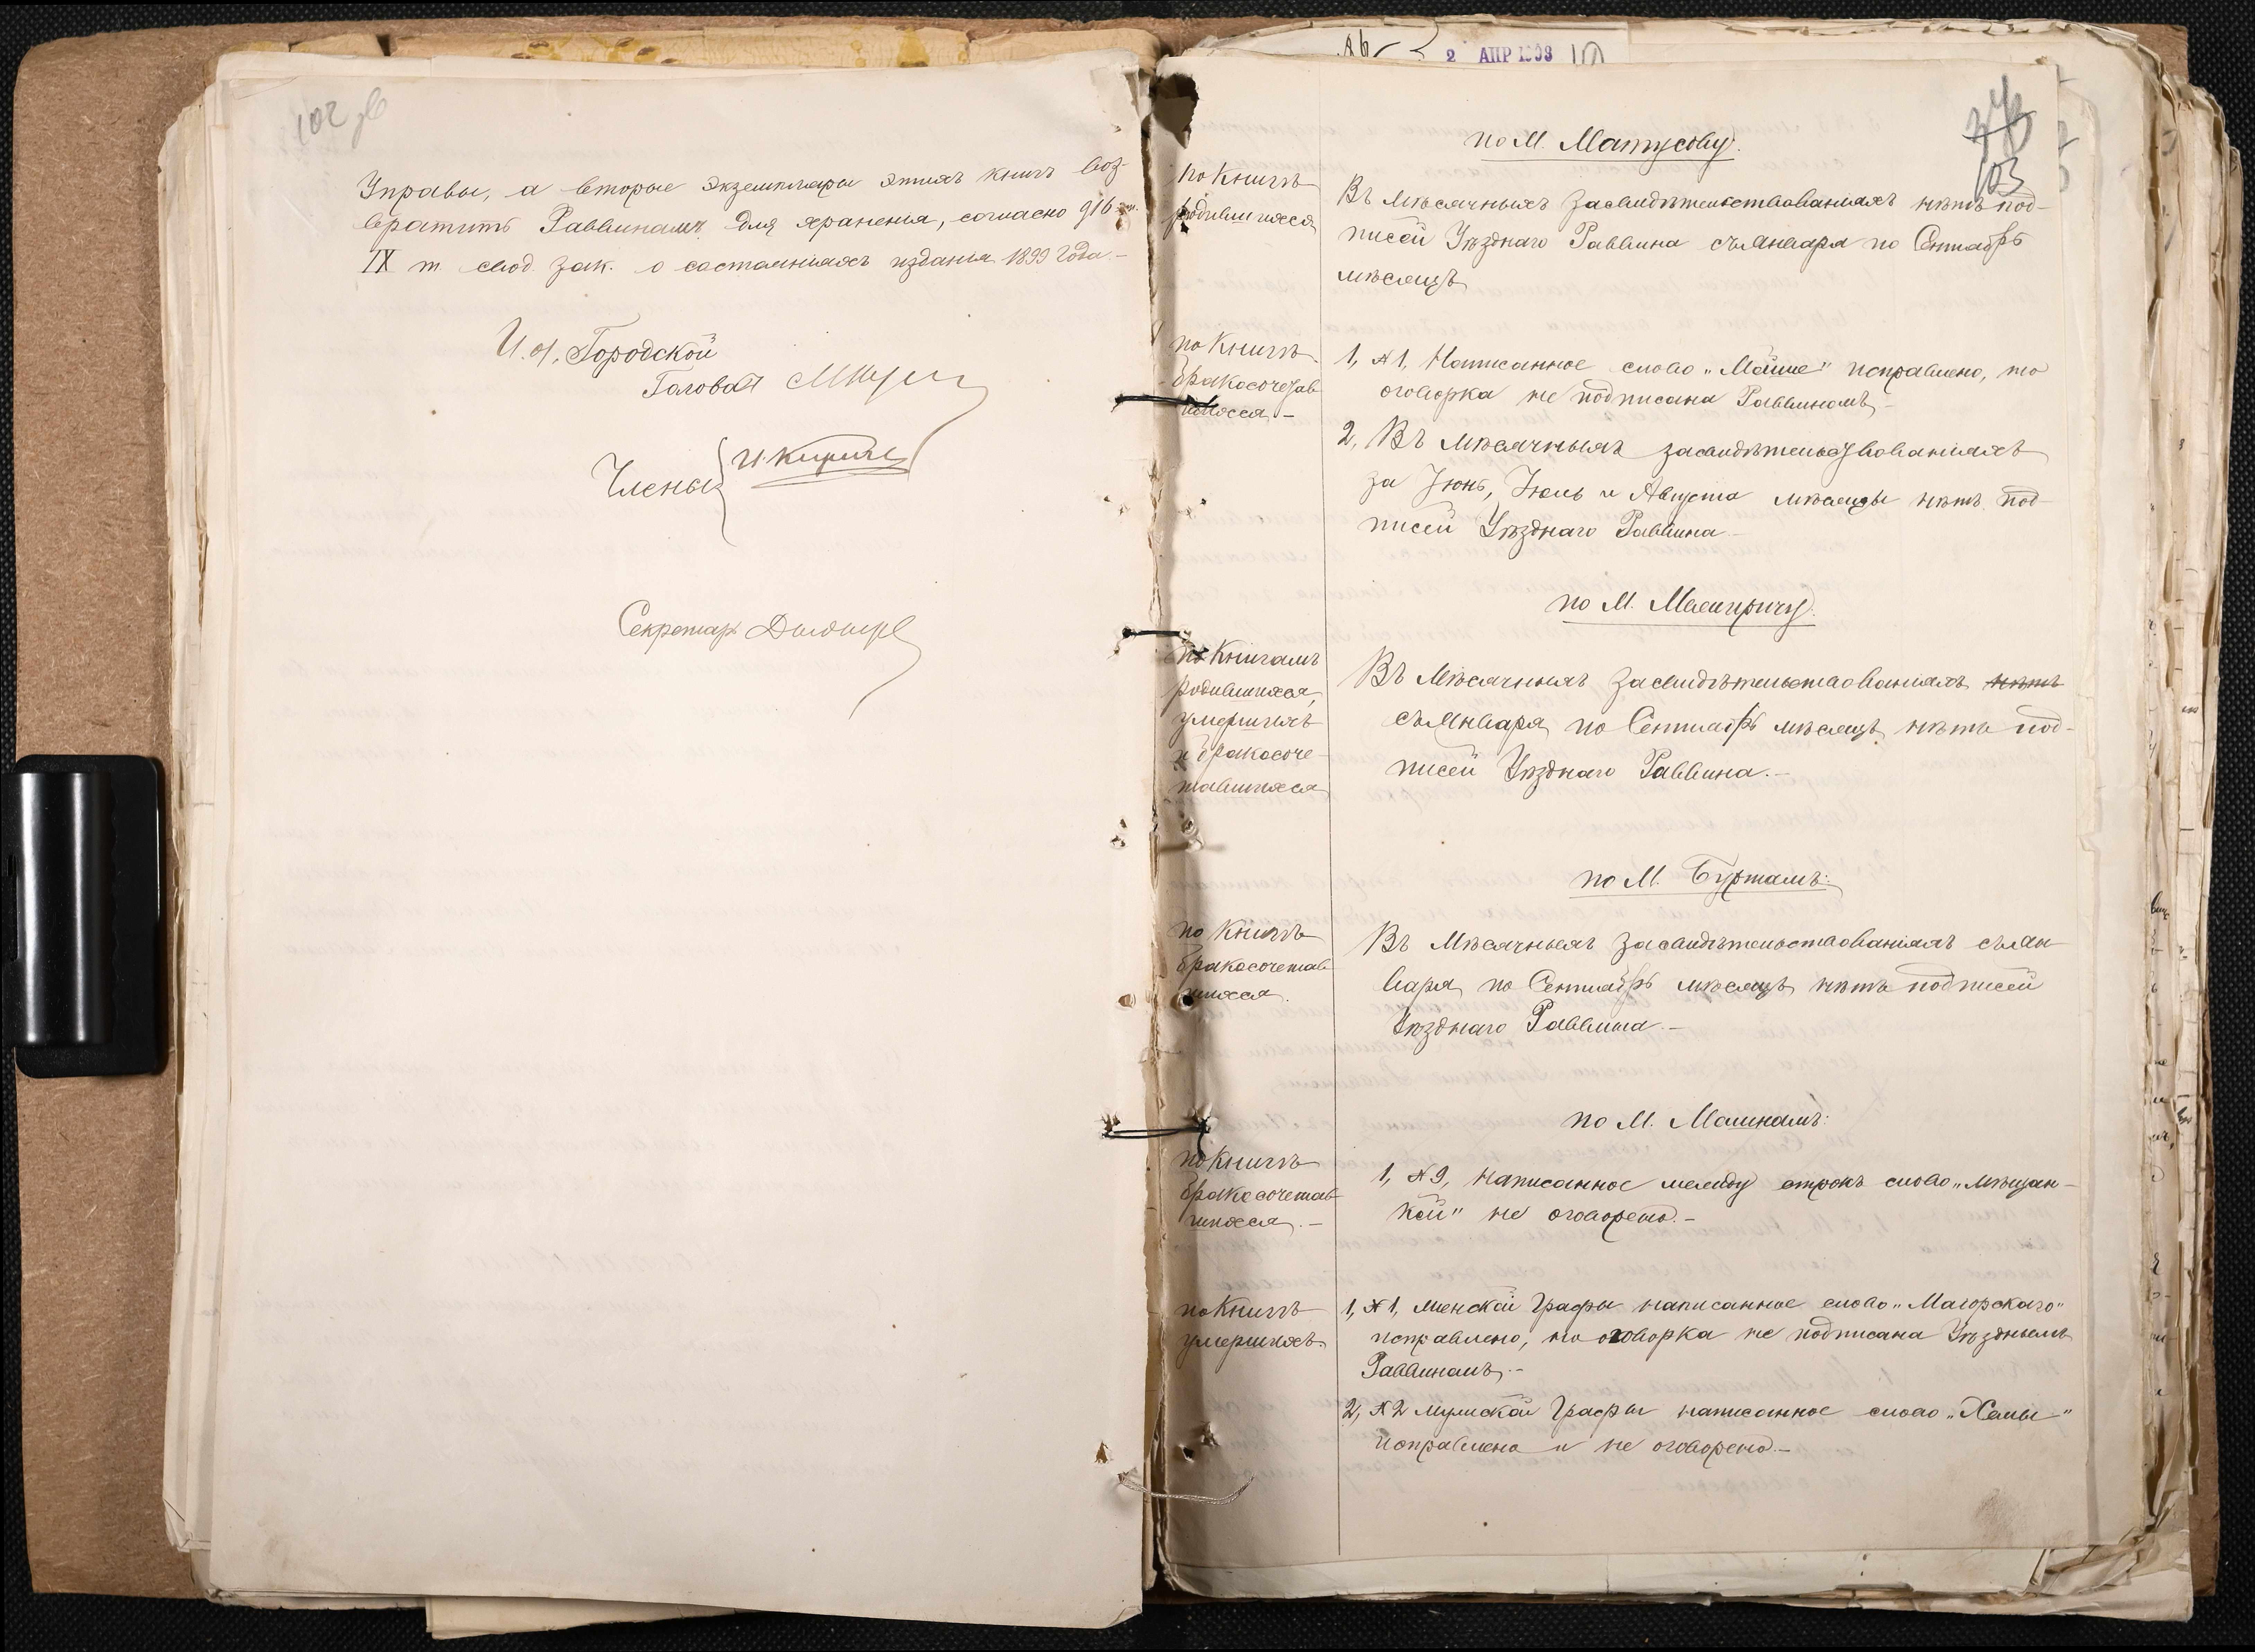 102 об
Управы, а вторые экземпляры этихъ книгъ воз-
вратить Раввинамъ для храненія, согласно 916 ст.
IX т. свод. зак. о состояніяхъ изданія 1899 года.-
И. д. Городской
Головы
Члены
Секретарь
2 АПР 1903
103
по М. Матусову.
по книгѣ
родившихся
Въ мѣсячныхъ засвидѣтельствованіяхъ нѣтъ под-
писей Уѣзднаго Раввина съ Января по Сентябрь
мѣсяцъ
по книгѣ
бракосочетав
шихся.-
1, №1, Написанное слово „Мойше" исправлено, но
оговорка не подписана Раввиномъ,-
2, Въ мѣсячныхъ засвидѣтельствованіяхъ
за Іюнь, Іюль и Августа мѣсяцы нѣтъ под-
писей Уѣзднаго Раввина.-
по М.
по книгамъ
родившихся,
умершихъ
и бракосоче-
тавшихся
Въ Мѣсячныхъ засвидѣтельствованіяхъ нѣтъ
съ Января по Сентябрь мѣсяцъ нѣтъ под-
писей Уѣзднаго Раввина.-
по М. Буртамъ:
по книгѣ
бракосочетав
шихся.
Въ Мѣсячныхъ засвидѣтельствованіяхъ съ Ян
варя по Сентябрь мѣсяцъ нѣтъ подписей
Уѣзднаго Раввина.-
по М.
по книгѣ
бракосочетав-
шихся.-
1, №9, написанное между строкъ слово „мѣщан-
кой" не оговорено.-
по книгѣ
умершихъ.
1, №1, женской графы написанное слово „Магорскаго"
исправлено, но оговорка не подписана Уѣзднымъ
Раввиномъ.-
2, №2 мужской графы написанное слово
исправлено и не оговорено.-